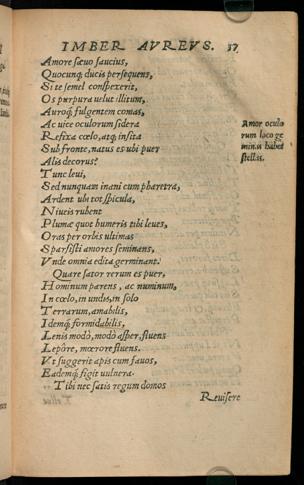 IMBER AVREVS. 37
Amore sæuo saucius,
Quocunq; ducis persequens,
Si te semel conspexerit,
Os purpura velut illitum,
Auroq́; fulgentem comas,
Ac vice oculorum sidera
Refixa cœlo, atq; insita
Sub fronte, natus es ubi puer
Alis decorus?
Amor oculo
rum loco ge
minis habet
stellis.
Tunc leui,
Sed nunquam inani cum pharetra,
Ardent ubi tot spicula,
Niueis rubent
Plumæ quot humeris tibi leues,
Oras per orbis ultimas
Sparsisti amores seminans,
Vnde omnia edita germinant.
Quare sator rerum es puer,
Hominum parens, ac numinum,
In cœlo, in undis, in solo
Terrarum, amabilis,
Idemq́; formidabilis,
Lenis modò, modò asper, fluens
Lepôre, mœrore fluens.
Vt suggerit apis cum fauos,
Eademq́; figit uulnera.
Tibi nec satis regum domos
Reuisere